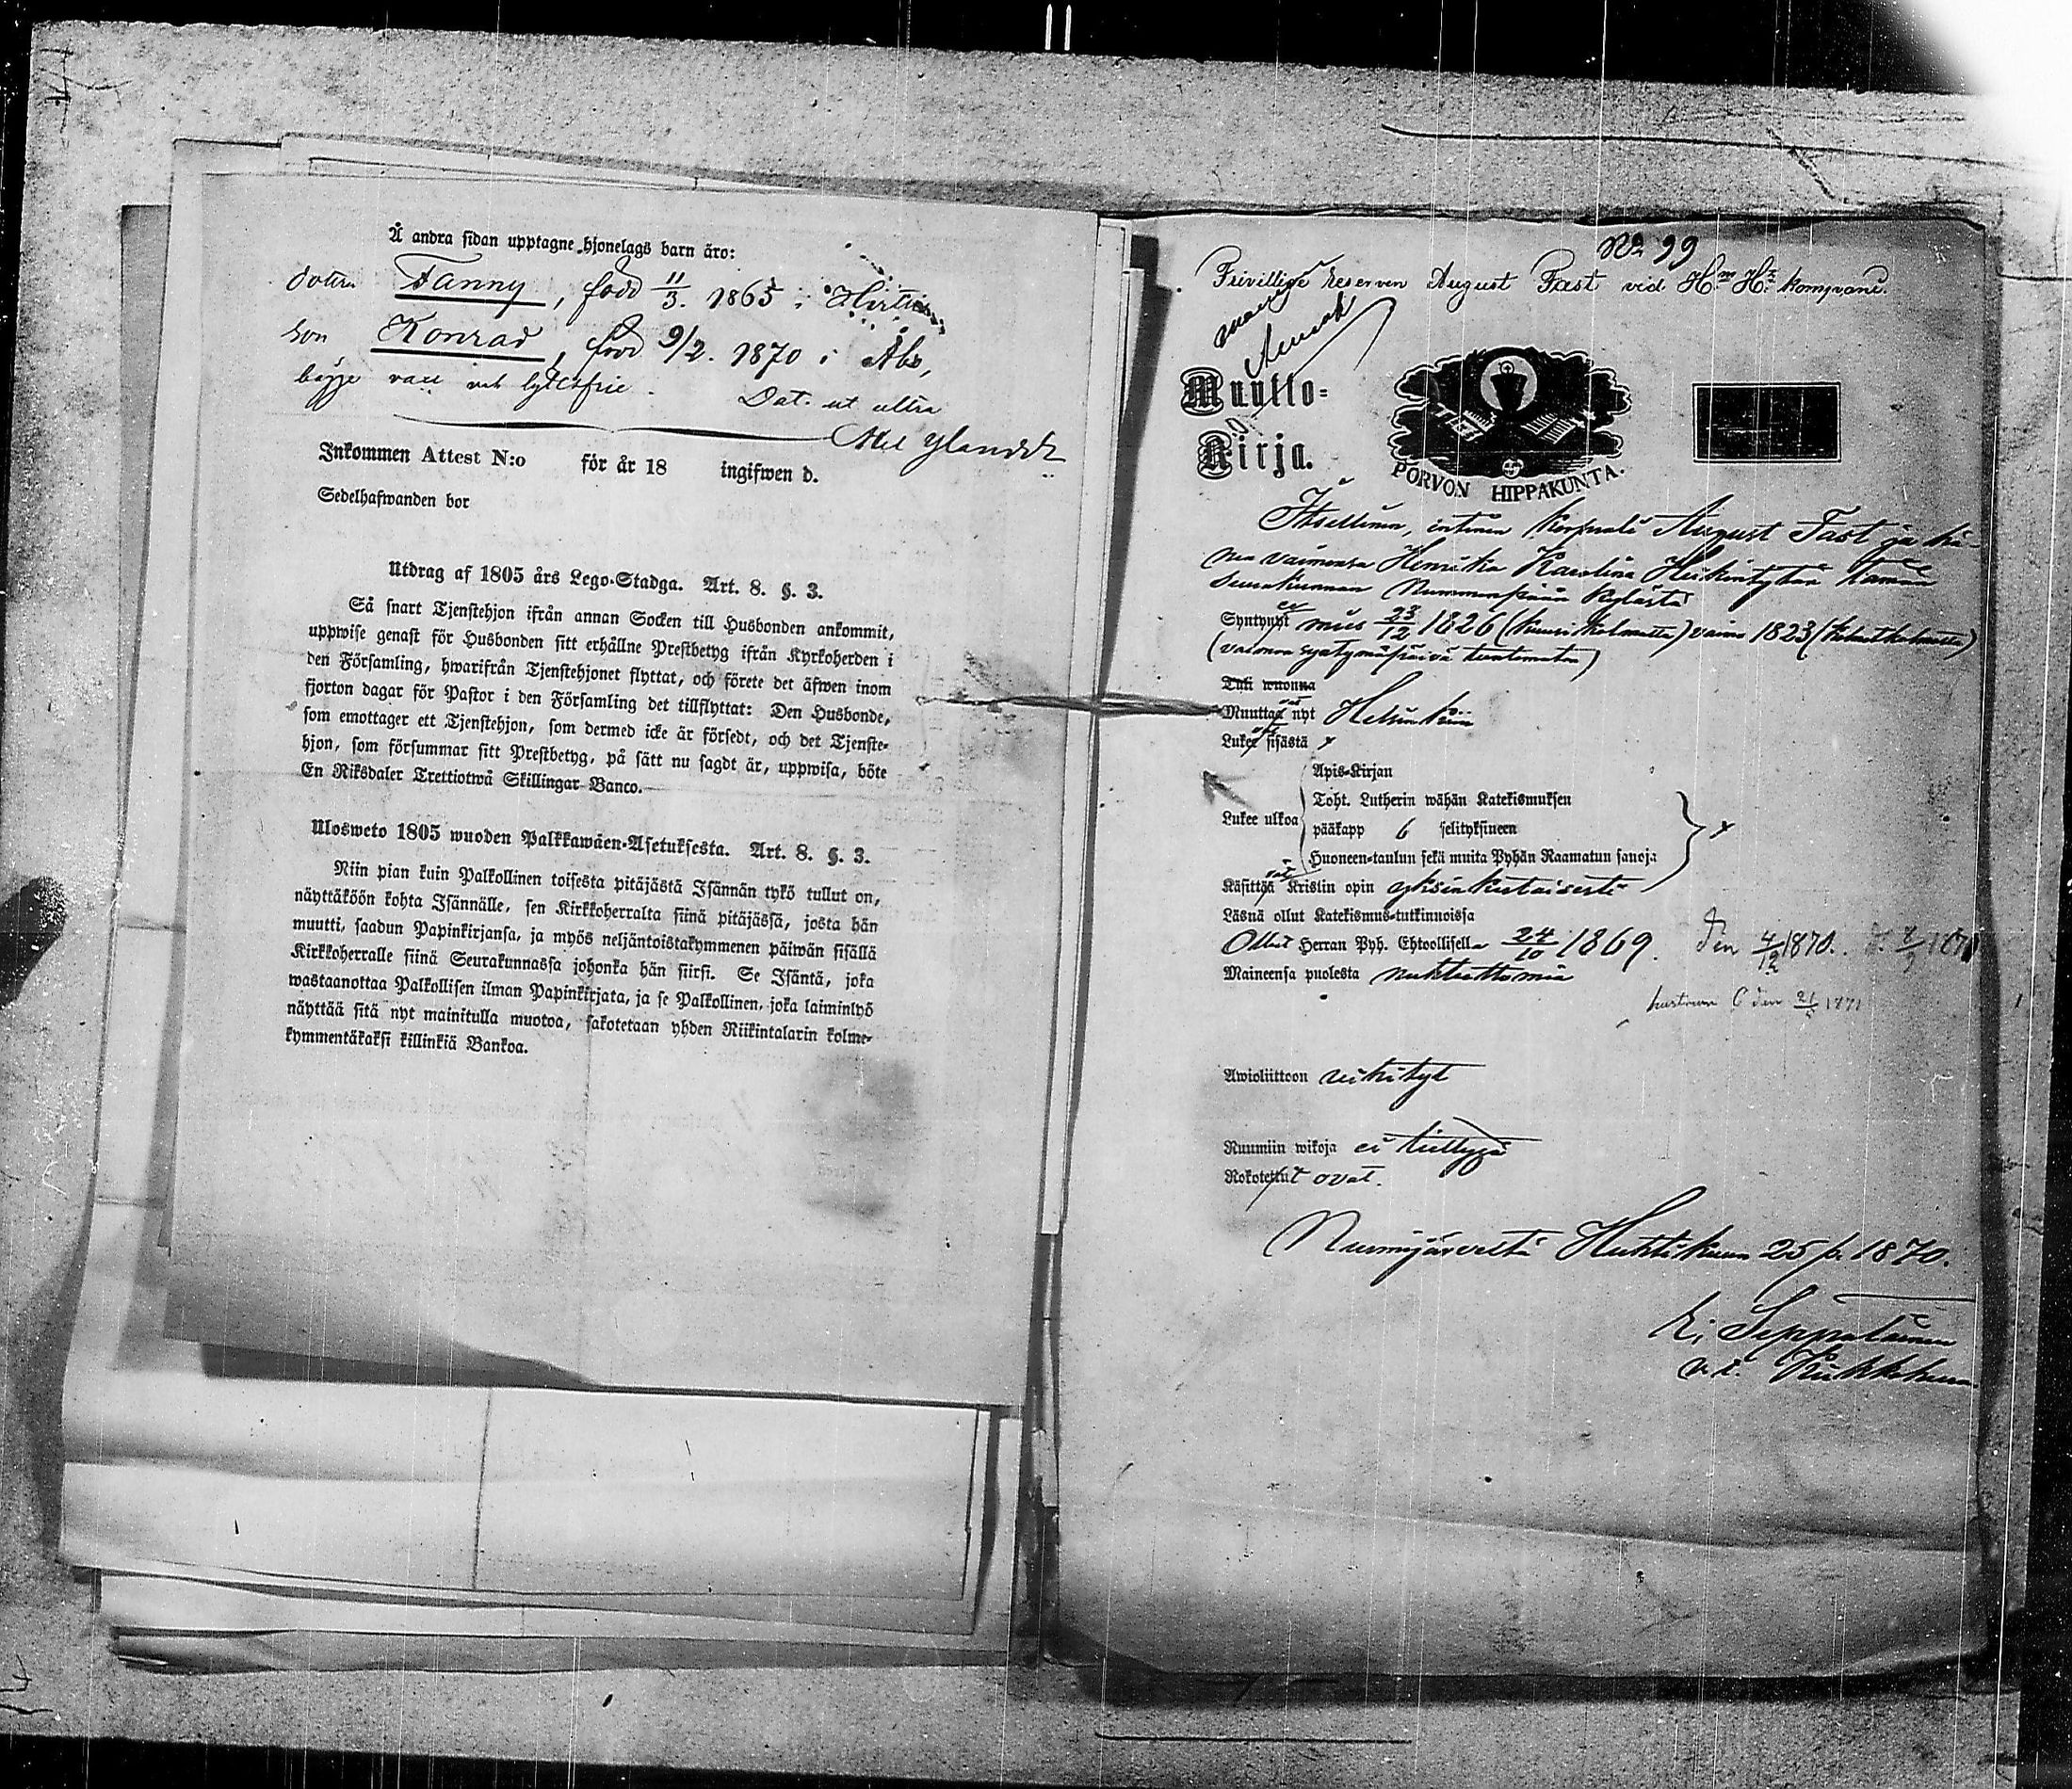 Å andra sidan upptagne hjonelags barn äro:
dottren Fanny, född 11/3. 1865 i
son Konrad, född 9/2. 1870 i Åbo,
begge vacc och lytesfrie. Dat. ut ultra
Inkommen Attest N:o för år 18 ingifwen d.
Sedelhafwanden bor
Utdrag af 1805 års Lego-Stadga. Art. 8. §. 3.
Så snart Tjenstehjon ifrån annan Socken till Husbonden ankommit,
uppwise genast för Husbonden sitt erhållne Prestbetyg ifrån Kyrkoherden i
den Församling, hwarifrån Tjenstehjonet flyttat, och förete det äfwen inom
fjorton dagar för Pastor i den Församling det tillflyttat: Den Husbonde,
som emottager ett Tjenstehjon, som dermed icke är försedt, och det Tjenste-
hjon, som försummar sitt Prestbetyg, på sätt nu sagdt är, uppwisa, böte
En Riksdaler Trettiotwå Skillingar Banco.
Ulosweto 1805 wuoden Palkkawäen-Asetuksesta. Art. 8. §. 3.
Niin pian kuin Palkollinen toisesta pitäjästä Isännän tykö tullut on,
näyttäköön kohta Isännälle, sen Kirkkoherralta siinä pitäjässä, josta hän
muutti, saadun Papinkirjansa, ja myös neljäntoistakymmenen päiwän sisällä
Kirkkoherralle siinä Seurakunnassa johonka hän siirsi. Se Isäntä, joka
wastaanottaa Palkollisen ilman Papinkirjata, ja se Palkollinen, joka laiminlyö
näyttää sitä nyt mainitulla muotoa, sakotetaan yhden Riikintalarin kolme-
kymmentäkaksi killinkiä Bankoa.
No 99
Frivillige reserven August Fast vid kompani.
Muutto-
Kirja.
PORVON HIPPAKUNTA.
Itsellinen, entinen Korprali August Fast ja hä-
nen vaimonsa Henrika Karolina Heikintytär tämän
seurakunnan Nummenpään kylästä
Syntynyt mies 23/12 1826 (kuusikolmatta) vaimo 1823 (kolmekolmatta)
(vaimon syntymäpäivä tuntematon)
Tuli wuonna
Muuttavat nyt Helsinkiin
Lukevat sisästä x
Apis-Kirjan
Toht. Lutherin wähän Katekismuksen
Lukee ulkoa
pääkapp 6 selityksineen
Huoneen-taulun sekä muita Pyhän Raamatun sanoja
x
Käsittävät Kristin opin yksinkertaisesti
Läsnä ollut Katekismus-tutkinnoissa
Ollut Herran Pyh. Ehtoollisella 24/10 1869. den 4/12 1870.
Maineensa puolesta nuhteettomia
Awioliittoon vihityt
Ruumiin wikoja ei tiettyjä
Rokotetut ovat.
Nurmijärveltä Huhtikuun 25 p. 1870.